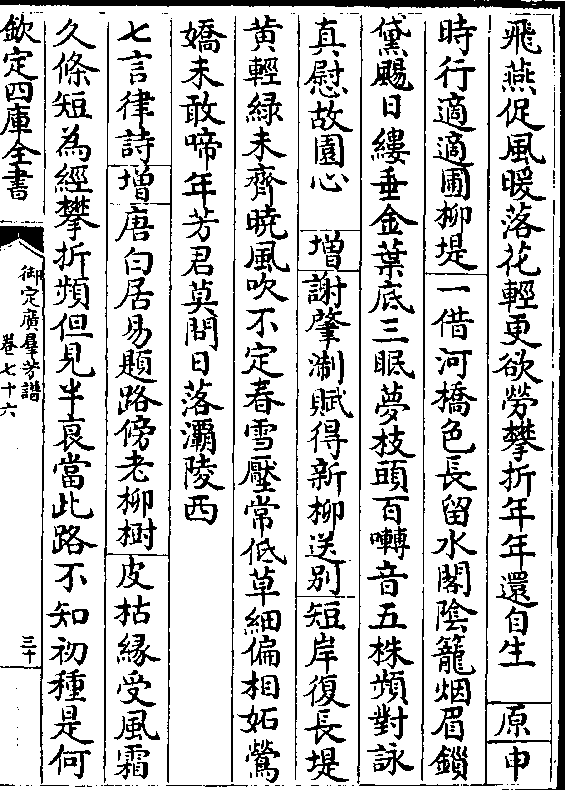 飛燕促風暖落花輕更欲勞攀折年年還自生　原申
時行適適圃柳堤一借河橋色長留水閣陰籠烟眉鎖
黛颺日縷垂金葉底三眠夢枝頭百囀音五株頻對詠
真慰故園心　増謝肇淛賦得新柳送别短岸復長堤
黄輕緑未齊曉風吹不定春雪壓常低草細偏相妬鶯
嬌未敢啼年芳君莫問日落灞陵西
七言律詩増唐白居易題路傍老柳樹皮枯緣受風霜
久條短為經攀折頻但見半衰當此路不知初種是何
欽定四庫全書
御定廣羣芳譜
卷七十六
三十